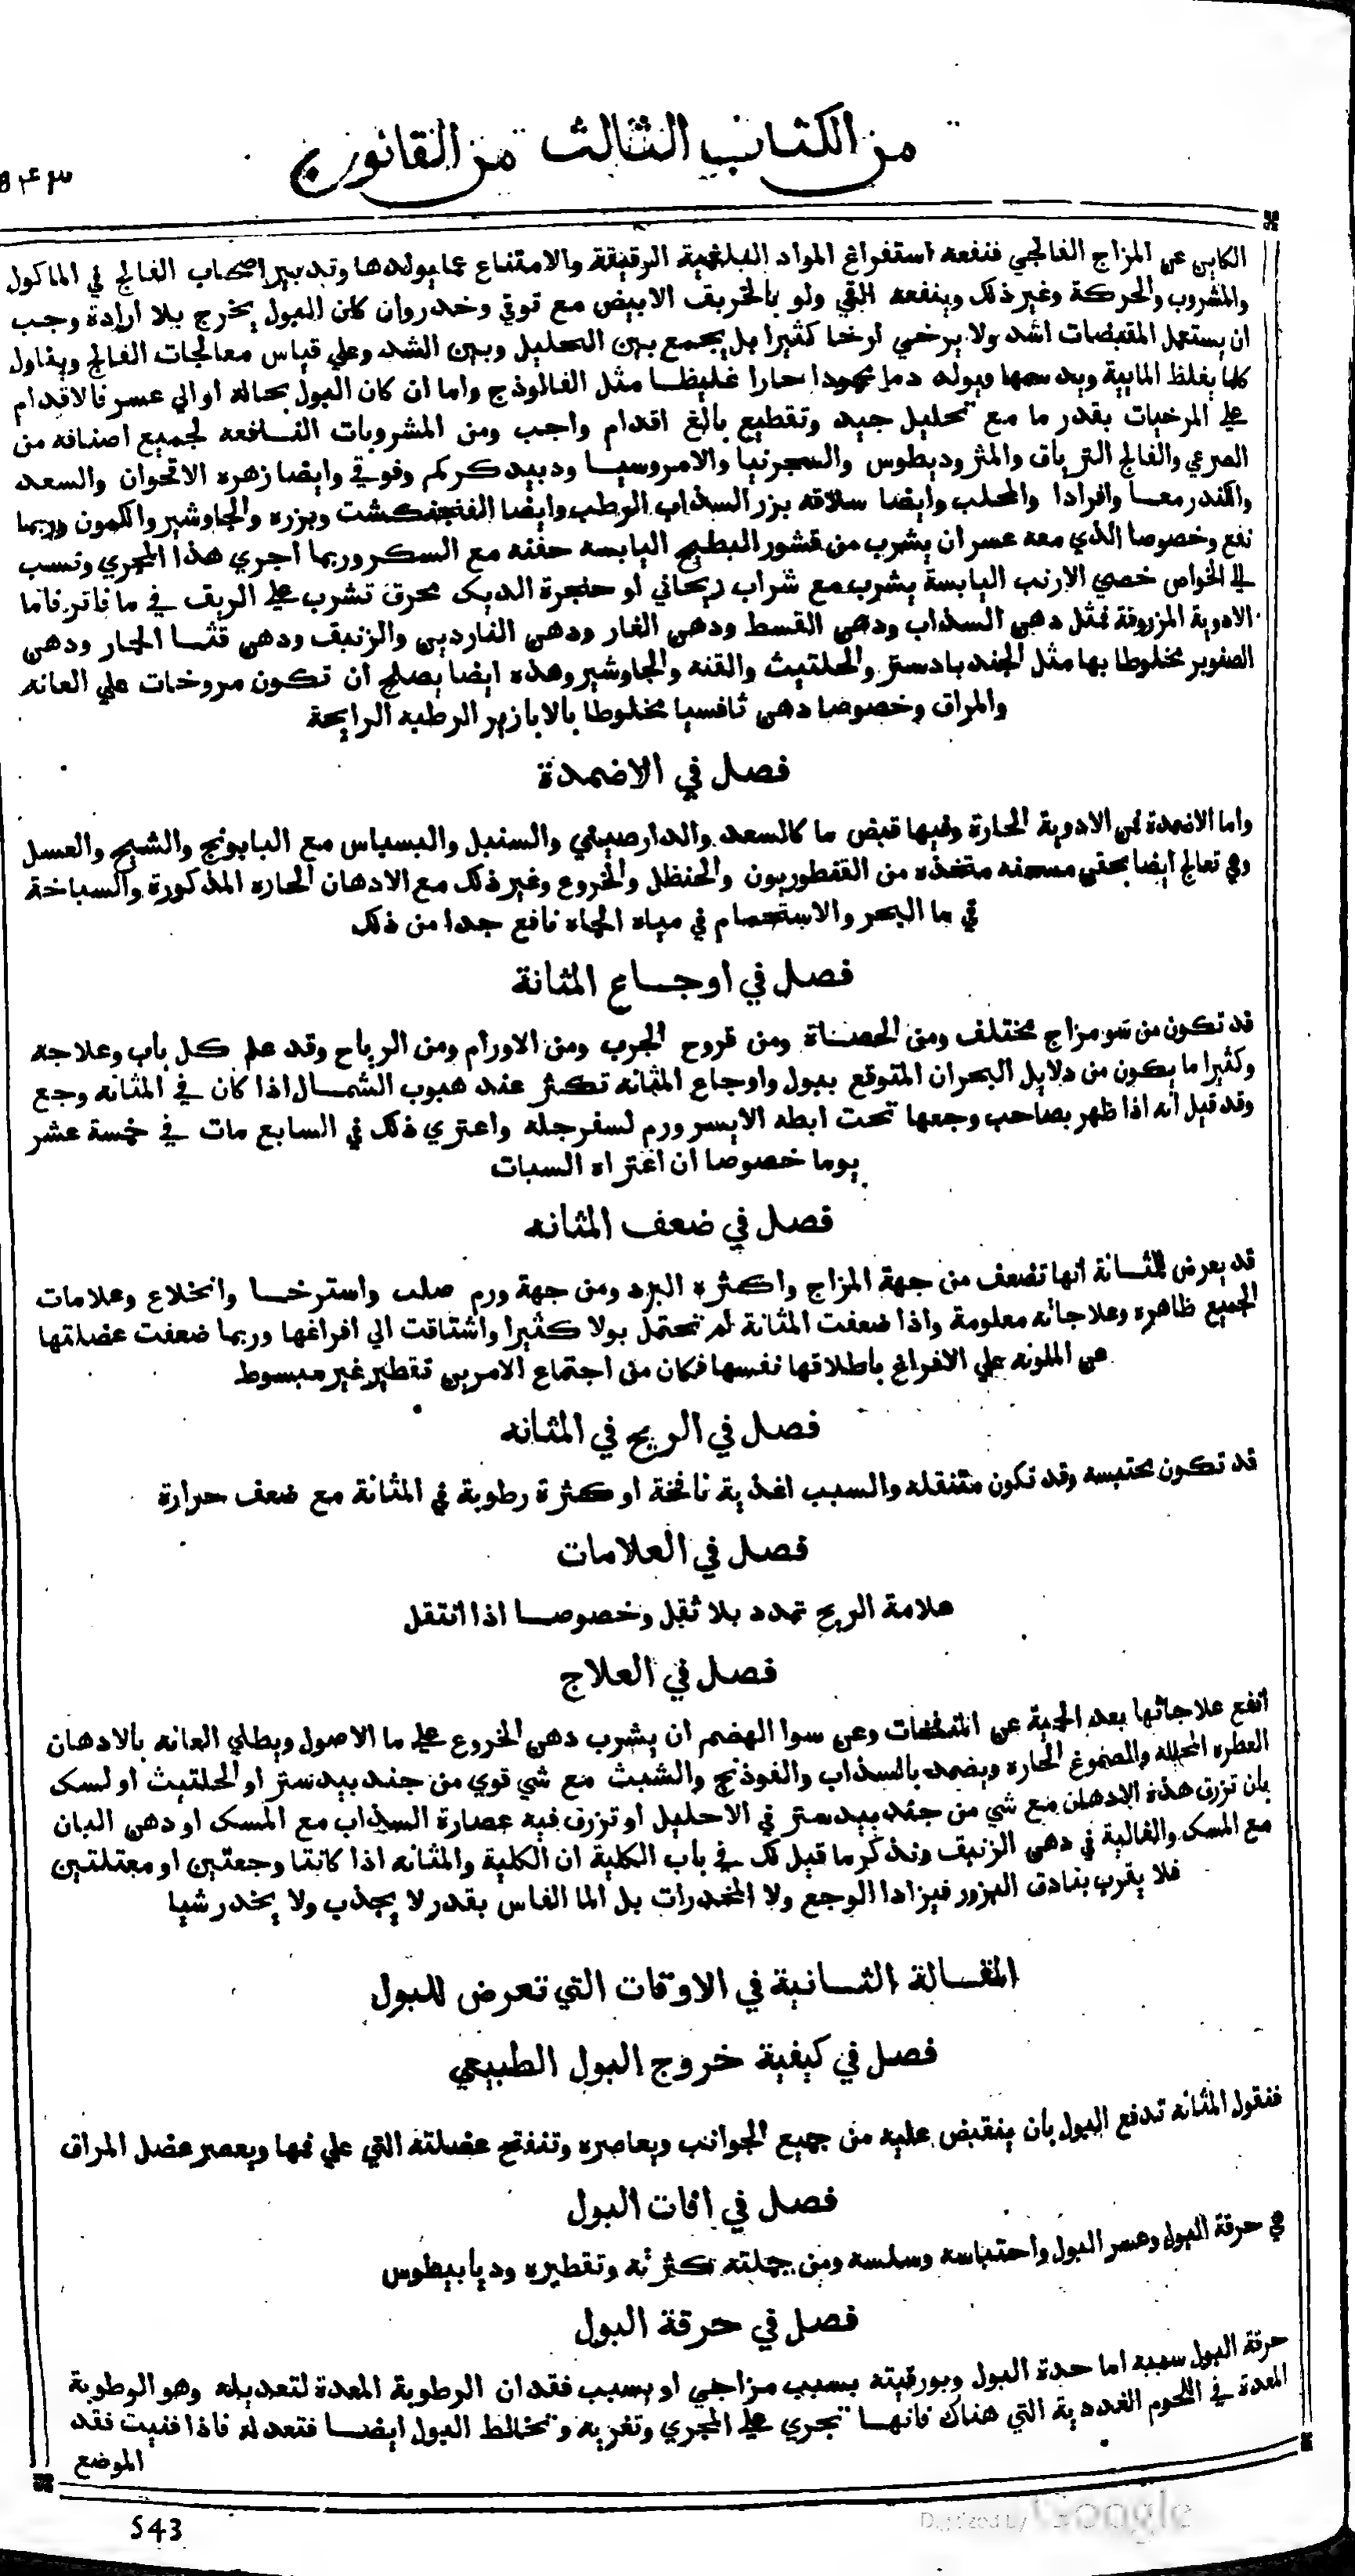 من الكتاب الثالث من القانون
٥٤٣
الكاين عن المزاج الفالجي فنفعه استفراغ المواد البلغمية الرقيقة والامتناع عما يولدها وتدبير اصحاب الفالج في الماكول
والمشروب والحركة وغير ذلك وينفعه القي ولو بالخربق الابيض مع توقي وخدر وان كان البول يخرج بلا ارادة وجب
ان يستعمل المقبضات اشد ولا يرخي ارخا كثيرا بل يجمع بين التحليل وبين الشد وعلي قياس معالجات الفالج ويفاول
كلما يغلظ المايية ويدسمها ويوله دما محمودا حارا غليظا مثل الفالوذج واما ان كان البول بحاله او الي عسر فالاقدام
علي المرخيات بقدر ما مع تحليل جيد وتقطيع بالغ اقدام واجب ومن المشروبات النافعه لجميع اصنافه من
الصرعي والفالج الترياق والمثروديطوس والسجرنيا والامروسيا ودبيد كركم وفوقي وايضا زهره الاقحوان والسعد
والكندر معا وافرادا والمحلب وايضا سلاقه بزر السذاب الرطب وايضا الفنجنكشت وبزره والجاوشير والكمون وربما
نفع وخصوصا الذي معه عسر ان يشرب من قشور البطيخ اليابسه حفنه مع السكر وربما اجري هذا المجري ونسب
الي الخواص خصي الارنب اليابسة يشرب مع شراب ريحاني او حنجرة الديك محرق تشرب علي الريق في ما فاتر فاما
الادوية المزروقة فمثل دهن السذاب ودهن القسط ودهن الغار ودهن الناردين والزنبق ودهن قثا الحمار ودهن
الصنوبر مخلوطا بها مثل الجندبادستر والحلتيث والقنه والجاوشير وهذه ايضا يصلح ان تكون مروخات علي العانه
والمراق وخصوصا دهن ثافسيا مخلوطا بالابازير الرطبه الرايحة
فصل في الاضمدة
واما الاضمدة فمن الادوية الحارة وفيها قبض ما كالسعد والدارصيني والسنبل والبسباس مع البابونج والشيح والعسل
وهي تعالج ايضا بحقن مسخنه متخذه من القنطوريون والحنظل والخروع وغير ذلك مع الادهان الحاره المذكورة والسباخة
في ما البحر والاستحمام في مياه الحماه نافع جدا من ذلك
فصل في اوجاع المثانة
قد تكون من سو مزاج مختلف ومن الحصاة ومن قروح الجرب ومن الاورام ومن الرياح وقد علم كل باب وعلاجه
وكثيرا ما يكون من دلايل البحران المتوقع ببول واوجاع المثانه تكثر عند هبوب الشمال اذا كان في المثانه وجع
وقد قيل انه اذا ظهر بصاحب وجعها تحت ابطه الايسر ورم لسفرجلة واعتري ذلك في السابع مات في خمسة عشر
يوما خصوصا ان اعتراه السبات
فصل في ضعف المثانه
قد يعرض للمثانة انها تضعف من جهة المزاج واكثره البرد ومن جهة ورم صلب واسترخا وانخلاع وعلامات
الجميع ظاهره وعلاجاته معلومة واذا ضعفت المثانة لم تحتمل بولا كثيرا واشتاقت الي افراغها وربما ضعفت عضلتها
عن الملونه علي الافراغ باطلاقها نفسها فكان من اجتماع الامرين تقطير غير مبسوط
فصل في الريح في المثانه
قد تكون محتبسه وقد تكون متنقله والسبب اغذية نافخة او كثرة رطوبة في المثانة مع ضعف حرارة
فصل في العلامات
علامة الريح تمدد بلا ثقل وخصوصا اذا انتقل
فصل في العلاج
انفع علاجاتها بعد الحمية عن المنفخات وعن سوا الهضم ان يشرب دهن الخروع علي ما الاصول ويطلي العانه بالادهان
العطره المحللة والصموغ الحاره ويضمد بالسذاب والفوذنج والشبث مع شي قوي من جندبيدستر او الحلتيث او لسك
بان تزرق هذه الادهان مع شي من جندبيدستر في الاحليل او تزرق فيه عصارة السذاب مع المسك او دهن البان
مع المسك والغالية في دهن الزنبق ونذكر ما قيل لك في باب الكلية ان الكلية والمثانه اذا كانتا وجعتين او معتلتين
فلا يقرب بنادق البزور فيزادا الوجع ولا المخدرات بل الما الفاس بقدر لا يجذب ولا يخدر شيا
المقالة الثانية في الاوقات التي تعرض للبول
فصل في كيفية خروج البول الطبيعي
فنقول المثانه تدفع البول بان ينقبض عليه من جميع الجوانب ويعاصره وتنفتح عضلته التي علي فمها ويعصر عضل المراق
فصل في افات البول
هي حرقة البول وعسر البول واحتباسه وسلسه ومن جملته كثرته وتقطيره وديابيطوس
فصل في حرقة البول
حرقة البول سببه اما حدة البول وبورقيته بسبب مزاجي او بسبب فقدان الرطوبة المعدة لتعديله وهو الرطوبة
المعدة في اللحوم الغددية التي هناك فانها تجري علي المجري وتغريه وتخالط البول ايضا فتعدله فاذا فنيت فقد
الموضع
543
Digitized by Google